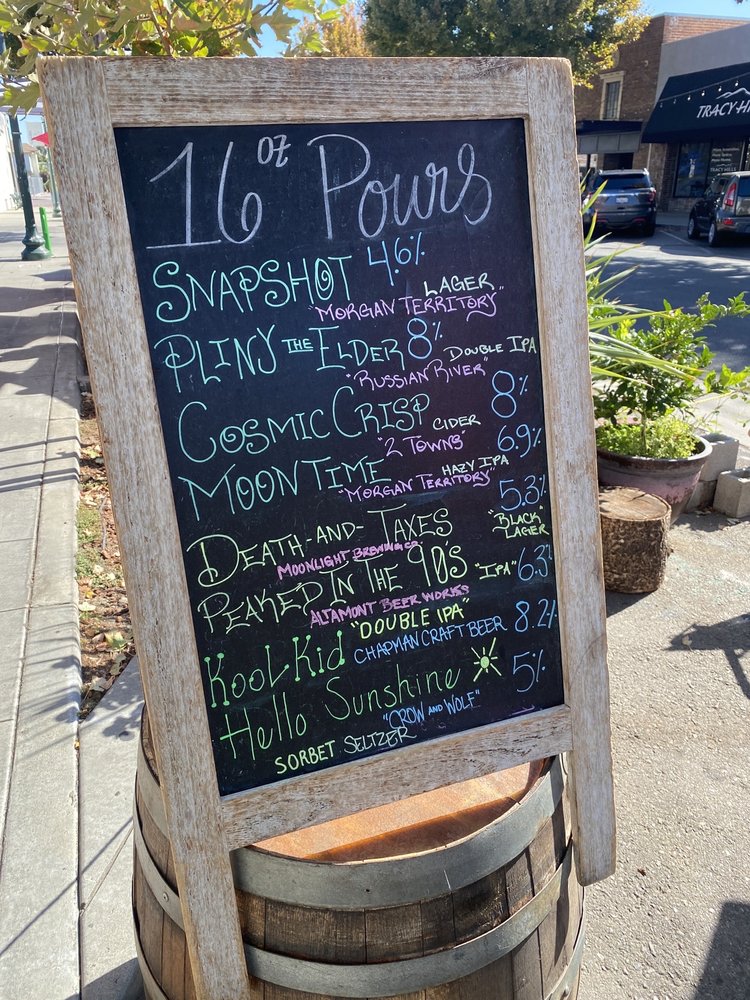 16 oz Pours
SNAPSHOT 4.6%
LAGER
"MORGAN TERRITORY"
PLINY THE ELDER 8%
DOUBLE IPA
"RUSSIAN RIVER"
COSMIC CRISP CIDER 8%
"2 TOWNS"
MOONTIME HAZY IPA 6.9%
"MORGAN TERRITORY"
DEATH-AND-TAXES 5.3%
"BLACK" LAGER
MOONLIGHT BREWING CO.
PEAKED IN THE 90S "IPA" 6.3%
ALTAMONT BEER WORKS
KOOL KID "DOUBLE IPA"
CHAPMAN CRAFT BEER 8.2%
Hello Sunshine 5%
"CROW AND WOLF"
SORBET SELTZER
TRACY H